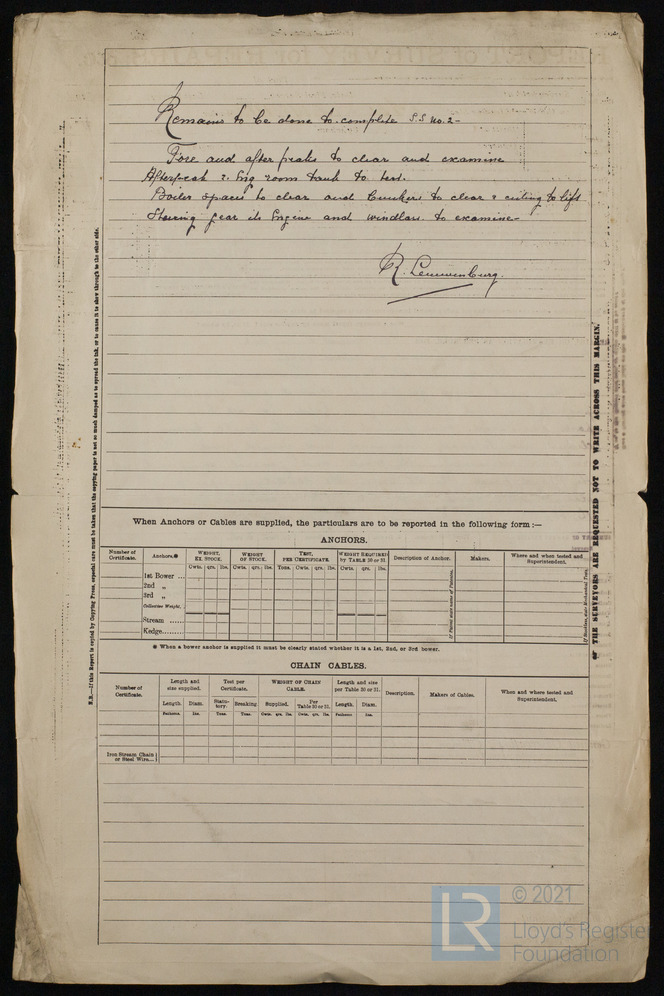 Remains to be done to complete S.S No. 2-
Fore and after peaks to clear and examine
Afterpeak & Eng room tank to test.
Boiler spaces to clear and bunkers to clear & ceiling to lift
Steering gear its Engine and windlass to examine-
R. Leeuwenburg.
N.B.—If this Report is copied by Copying Press, especial care must be taken that the copying paper is not so much damped as to spread the ink, or to cause it to show through to the other side.
THE SURVEYORS ARE REQUESTED NOT TO WRITE ACROSS THIS MARGIN.
When Anchors or Cables are supplied, the particulars are to be reported in the following form :—
ANCHORS.
Number of Certificate. Anchors.* WEIGHT, EX. STOCK. WEIGHT OF STOCK. TEST, PER CERTIFICATE. WEIGHT REQUIRED by TABLE 30 or 31. Description of Anchor. Makers. Where and when tested and Superintendent.
Cwts. qrs. lbs. Cwts. qrs. lbs. Tons. Cwts. qrs. lbs. Cwts. qrs. lbs.
1st Bower ...
2nd „
3rd „
Collective Weight.
Stream ......
Kedge.......
If Patent state name of Patentee.
* When a bower anchor is supplied it must be clearly stated whether it is a 1st, 2nd, or 3rd bower.
CHAIN CABLES.
Number of Certificate. Length and size supplied. Test per Certificate. WEIGHT OF CHAIN CABLE. Length and size per Table 30 or 31. Description. Makers of Cables. When and where tested and Superintendent.
Length. Diam. Statutory. Breaking Supplied. Per Table 30 or 31. Length. Diam.
Fathoms. Ins. Tons. Tons. Cwts. qrs. lbs. Cwts. qrs. lbs. Fathoms. Ins.
Iron Stream Chain or Steel Wire...
LR
© 2021
Lloyd's Register
Foundation